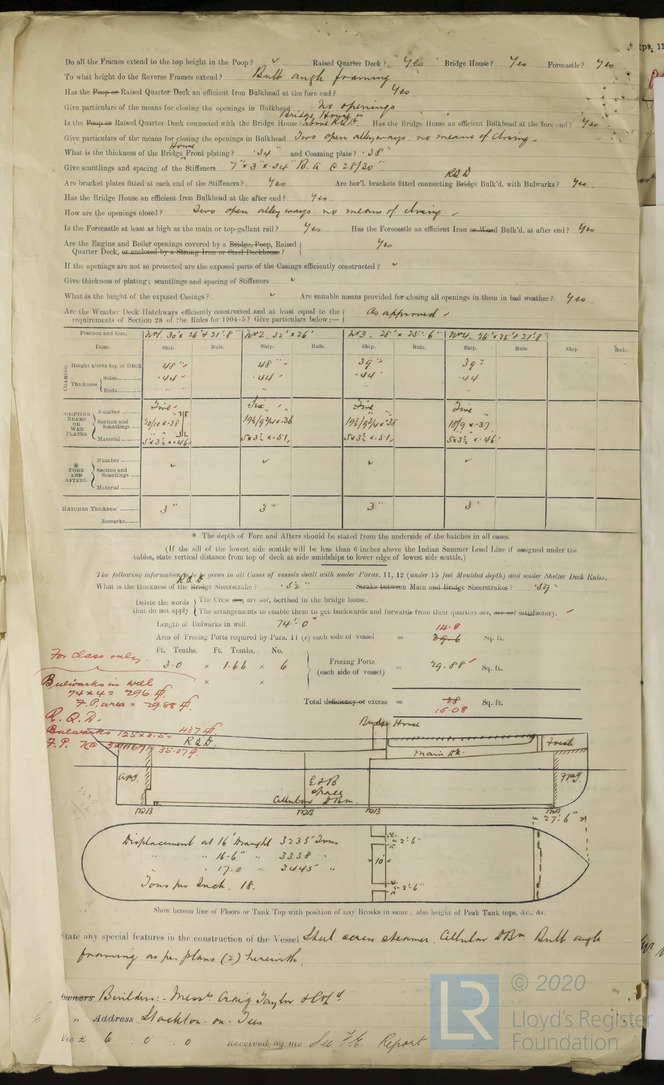 Do all the Frames extend to the top height in the Poop? ✓ Raised Quarter Deck? Yes Bridge House? Yes Forecastle? Yes
To what height do the Reverse Frames extend? Bulb angle framing
Has the Poop or Raised Quarter Deck an efficient Iron Bulkhead at the fore end? Yes
Give particulars of the means for closing the openings in Bulkhead No openings
Is the Poop or Raised Quarter Deck connected with the Bridge House? Has the Bridge House an efficient Bulkhead at the fore end? Yes
Give particulars of the means for closing the openings in Bulkhead Two open alleyways no means of closing.
What is the thickness of the Bridge House Front plating? .34" and Coaming plate? .38"
Give scantlings and spacing of the Stiffeners 7" x 3" x .34" B.A @ 28/20"
Are bracket plates fitted at each end of the Stiffeners? Yes Are hor'l. brackets fitted connecting Bridge RQD Bulk'd. with Bulwarks? Yes
Has the Bridge House an efficient Iron Bulkhead at the after end? Yes
How are the openings closed? Two open alleyways no means of closing
Is the Forecastle at least as high as the main or top-gallant rail? Yes Has the Forecastle an efficient Iron or Wood Bulk'd. at after end? Yes
Are the Engine and Boiler openings covered by a Bridge, Poop, Raised
Quarter Deck, or enclosed by a Strong Iron or Steel Deckhouse? Yes
If the openings are not so protected are the exposed parts of the Casings efficiently constructed? ✓
Give thickness of plating; scantlings and spacing of Stiffeners ✓
What is the height of the exposed Casings? ✓ Are suitable means provided for closing all openings in them in bad weather? Yes
Are the Weather Deck Hatchways efficiently constructed and at least equal to the
requirements of Section 28 of the Rules for 1904-5? Give particulars below:— As approved
Position and Size. No1. 30' x 26' & 21'8" No2. 32' x 26' No3. 28' x 25'.6" No4. 26' x 25' & 21'8"
Item. Ship. Rule. Ship. Rule. Ship. Rule. Ship. Rule. Ship. Rule.
COAMING. Height above top of DECK 48" 48" 39" 39"
Thickness Sides .44 .44 .44 .44
Ends
SHIFTING BEAMS OR WEB PLATES Number Five Six Five Five
Section and Scantlings
Material 5x3½ x .46 5x3½ x .51 5x3½ x .51 5x3½ x .46
* FORE AND AFTERS Number ✓ ✓ ✓ ✓
Section and Scantlings
Material
HATCHES Thickness 3" 3" 3" 3"
Remarks
* The depth of Fore and Afters should be stated from the underside of the hatches in all cases.
(If the sill of the lowest side scuttle will be less than 6 inches above the Indian Summer Load Line if assigned under the
tables, state vertical distance from top of deck at side amidships to lower edge of lowest side scuttle.)
The following information to be given in all Cases of vessels dealt with under Paras. 11, 12 (under 15 feet Moulded depth) and under Shelter Deck Rules.
What is the thickness of the Bridge RQD Sheerstrake? .52" Strake between Main and Bridge Sheerstrakes? .59
Delete the words that do not apply
The Crew are, are not, berthed in the bridge house.
The arrangements to enable them to get backwards and forwards from their quarters are, are not satisfactory.
Length of Bulwarks in well 74'.0"
Area of Freeing Ports required by Para. 11 (e) each side of vessel = 29.6 14.8 Sq. ft.
Ft. Tenths. Ft. Tenths. No.
3.0 x 1.66 x 6 Freeing Ports (each side of vessel) = 29.88 Sq. ft.
x x
Total deficiency or excess = .28 15.08 Sq. ft.
For class only.
Bulwarks in well
74 x 4 = 296
F.P. area = 29.88
R.Q.D.
Bulwarks 125 x 3.5 = 437
35.07
Bridge House
RQD
Main Dk.
Fresh
APT
E & B Space
FPT
Cellular DBm
WTB WTB WTB WTB
27'.6"
Displacement at 16' Draught 3235 Tons
" " 16-6" " 3338 "
" " 17.0 " 3445 "
Tons per Inch. 18.
10'
2'.6"
2'.6"
Show hereon line of Floors or Tank Top with position of any Breaks in same; also height of Peak Tank tops, &c., &c.
State any special features in the construction of the Vessel Steel screw steamer. Cellular DBm Bulb angle
framing as per plans (2) herewith.
Owners Builders:- Messrs Craig Taylor & Co Ld
" Address Stockton-on-Tees
Fee £ 6 : 0 : 0 Received by me See F.E. Report
© 2020
Lloyd's Register
Foundation
LR